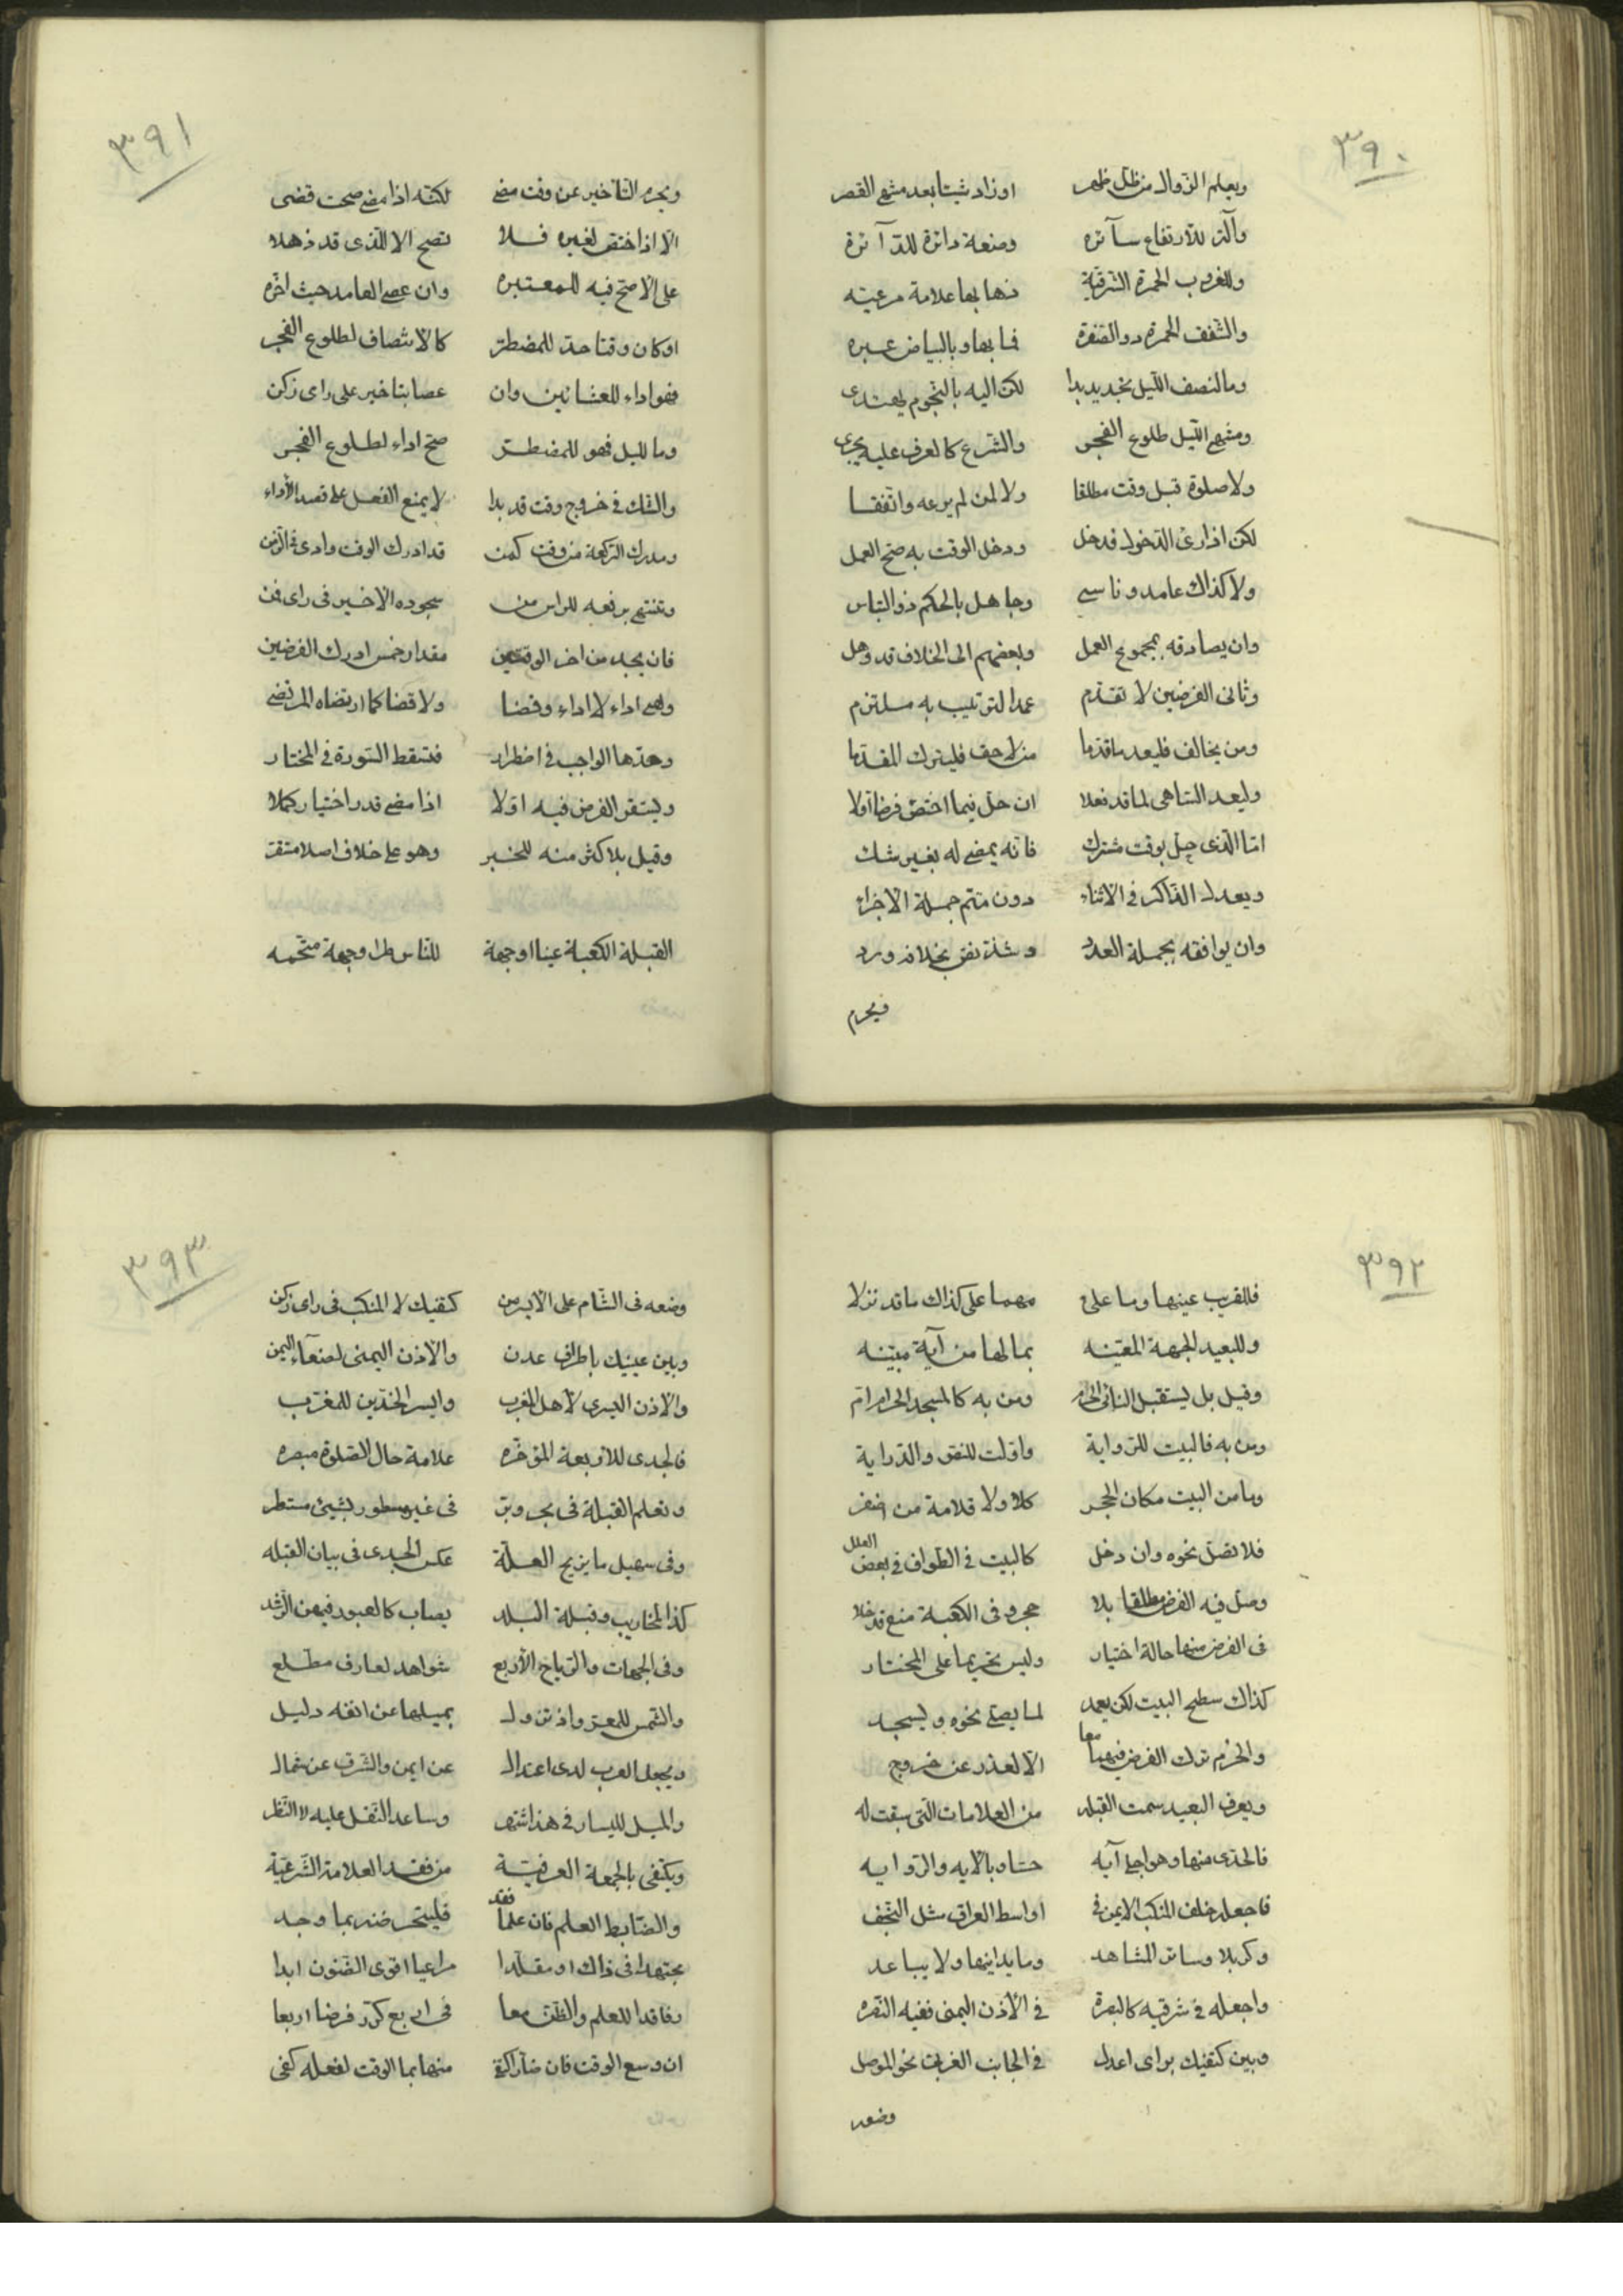 ٣٩٠
ويعلم الزوال من ظل ظهر اوزاد شيئا بعد منتهى القصر
وآلة للارتفاع سآئره وصنعة دائرة للدآئرة
وللغروب الحمرة الشرقية ذهابها علامة مرعيه
والشفق الحمرة دون الصفرة فما بها وبالبياض عبره
وما لنصف الليل تحديد بدا لكن اليه بالنجوم يهتدى
ومنتهى الليل طلوع الفجر والشرع كالعرف عليه يجرى
ولا صلوة قبل وقت مطلقا ولا لمن لم يرعه واتفقا
لكن اذا رئى الدخول فدخل ودخل الوقت به صح العمل
ولا كذاك عامد وناسى وجاهل بالحكم ذو التباس
وان يصادفه بمجموع العمل وبعضهم الى الخلاف قد وهل
وثانى الفرضين لا تقدم عمدا لترتيب به ملتزم
ومن يخالف فليعد ما قدما من لاحق فليترك المقدما
وليعد الساهى لما قد فعلا ان حل فيما اختص فرضا اولا
اما الذى حل بوقت مشترك فانه يمضى له بغير شك
ويعدل الذاكر فى الاثناء دون متم جملة الاجزاء
وان يوافقه بجملة العدد وشذ نص بخلافه ورد
فيحرم
٣٩١
ويحرم التأخير عن وقت مضى لكنه اذا مضى صحت قضى
الا اذا اختص لغيره فلا تصح الا للذى قد ذهلا
على الاصح فيه للمعتبره وان عصى العامد حيث اخره
او كان وقتا حد للمضطر كالانتصاف لطلوع الفجر
فهو اداء للعشائين وان عصا بتاخير على راى زكن
وما لليل فهو للمضطر صح اداء لطلوع الفجر
والشك فى خروج وقت قد بدا لا يمنع الفعل على قصد الأداء
ومدرك الركعة من وقت كمن قد ادرك الوقت وادى فى الزمن
وتنتهى برفعه للراس من سجوده الاخير فى راى قمن
فان يجد من اخر الوقتين مقدار خمس ادرك الفرضين
وهى اداء لا اداء وقضا ولا قضا كما ارتضاه المرتضى
وحدها الواجب فى اضطرار فتسقط السورة فى المختار
ويستقر الفرض فيه اولا اذا مضى قدر اختيار كملا
وقيل بل اكثر منه للخبر وهو على خلاف اصل مستقر
القبلة الكعبة عينا او جهة للناس طرا وجهة متجهه
٣٩٢
فللقريب عينها وما على مهما على كذاك ما قد نزلا
وللبعيد الجهة المعينه بما لها من آية مبينه
وقيل بل يستقبل النائى الحرم ومن به كالمسجد الحرام ام
ومن به فالبيت للرواية واولت للنص والدراية
وما من البيت مكان الحجر كلا ولا قلامة من ظفر
فلا تصل نحوه وان دخل كالبيت فى الطواف فى بعض العلل
وصل فيه الفرض مطلقا بلا حجر وفى الكعبة منع قد خلا
فى الفرض منها حالة اختيار وليس تحريما على المختار
كذاك سطح البيت لكن يعمد لما يصلى نحوه ويسجد
والحزم ترك الفرض فيهما معا الا لعذر عن خروج
ويعرف البعيد سمت القبله من العلامات التى سيقت له
فالجدى منها وهو اجلى آيه حساو بالايه والروايه
فاجعله خلف المنكب الايمن فى اواسط العراق مثل النجف
وكربلا وسائر المشاهد وما يدانيها ولا يباعد
واجعله فى شرقيه كالبصرة فى الأذن اليمنى ففيه التبصره
وبين كتفيك براى اعدل فى الجانب الغربى نحو الموصل
وضعه
٣٩٣
وضعه فى الشام على الايسر من كتفيك لا المنكب فى راى زكن
وبين عينيك باطراف عدن والاذن اليمنى لصنعآء اليمن
والأذن اليسرى لأهل المغرب وايسر الخدين للمغرب
فالجدى للاربعة المؤخره علامة حال الصلوة مبصره
وتعلم القبلة فى بحر وبر فى غير مسطور بشىء مستطر
وفى سهيل ما يزيح العلة عكس الجدى فى بيان القبله
كذا المحاريب وقبلة البلد يصاب كالعبور فيهن الرشد
وفى الجهات والرياح الأربع شواهد لعارف مطلع
والشمس للمعز واذ تزول بميلها عن انفه دليل
ويجعل الغرب لدى اعتدال عن ايمن والشرق عن شمال
والميل لليسار فى هذا اشتهر وساعد النقل عليه لا النظر
ويكتفى بالجهة العرفية من فقد العلامة الشرعية
والضابط العلم فان علما فقد فليتحر ضنه بما وجد
مجتهدا فى ذاك او مقلدا مراعيا اقوى الظنون ابدا
وفاقدا للعلم والظن معا فى اربع كرر فرضا اربعا
ان وسع الوقت فان ضاق اكتفى منها بما الوقت لفعله كفى